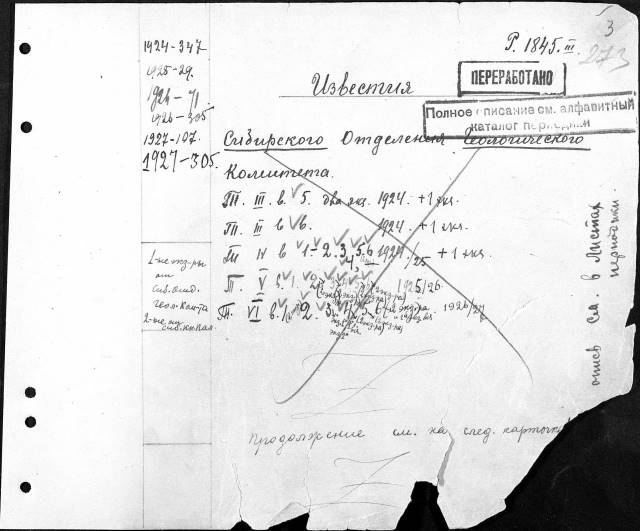 3
P. 1845.III
273
ПЕРЕРАБОТАНО
Известия
Полное описание см. алфавитный
каталог периодики
Сибирского Отделения Геологического
Комитета.
1924-347
1925-29.
1926-71
1926-305
1927-107.
1927-305.
Т. III. в. 5. два экз. 1924. +1 экз.
Т. III в. 6. 1924. +1 экз.
Т. IV в 1-2.3,4,5.6 1924/25 +1 экз.
Т. V в. 1. 2 1925/26.
Т. VI в. 1. 2. 3. 4. 5. 6 1926/27
1-ые экз-ры
от
сиб. отд.
геол. ком-та
2-ые
опись см. в листах
периодики.
Продолжение см. на след. карточке